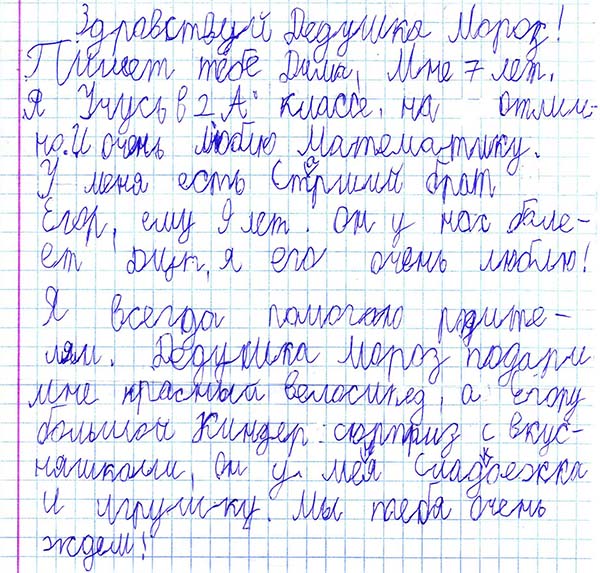 Здравствуй Дедушка Мороз!
Пишет тебе Дима, Мне 7 лет.
Я Учусь в 2 "А" классе, на отлич-
но. И очень люблю Математику.
У меня есть Старший брат
Егор, ему 9 лет. Он у нас боле-
ет я его очень люблю!
Я всегда помогаю родите-
лям. Дедушка Мороз подари
мне красный велосипед, а Егору
большой Киндер-сюрприз с вкус-
няшками, он у меня Сладкоежка
и игрушку. Мы тебя очень
ждем!